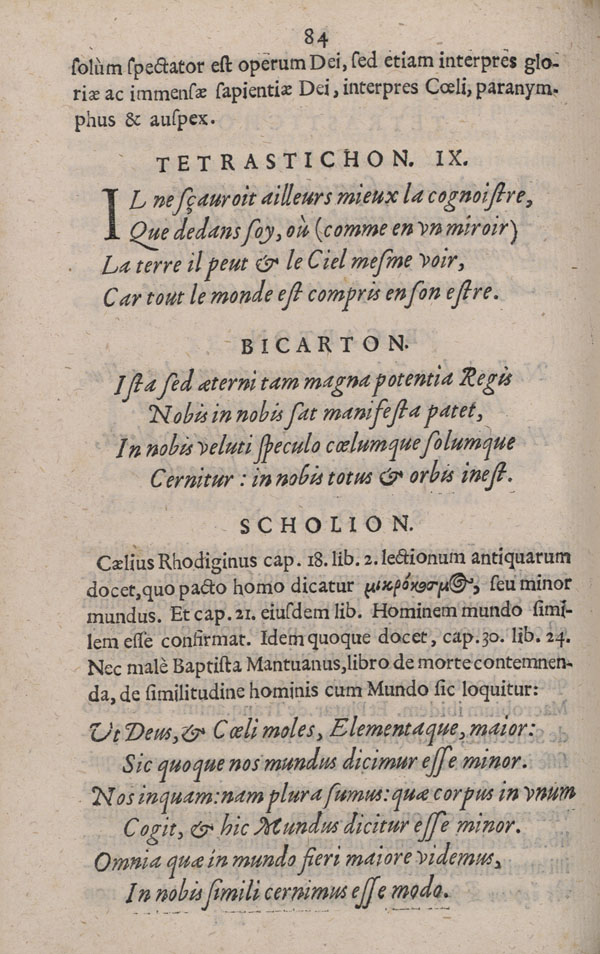 84
solùm spectator est operum Dei, sed etiam interpres glo-
riæ ac immensæ sapientiæ Dei, interpres Cœli, paranym-
phus & auspex.
TETRASTICHON. IX.
IL ne sçauroit ailleurs mieux la cognoistre,
Que dedans soy, où (comme en vn miroir)
La terre il peut & le Ciel mesme voir,
Car tout le monde est compris en son estre.
BICARTON.
Ista sed æterni tam magna potentia Regis
Nobis in nobis sat manifesta patet,
In nobis veluti speculo cœlumque solumque
Cernitur: in nobis totus & orbis inest.
SCHOLION.
Cælius Rhodiginus cap. 18. lib. 2. lectionum antiquarum
docet, quo pacto homo dicatur μικρόκοσμος, seu minor
mundus. Et cap. 21. eiusdem lib. Hominem mundo simi-
lem esse confirmat. Idem quoque docet, cap. 30. lib. 24.
Nec malè Baptista Mantuanus, libro de morte contemnen-
da, de similitudine hominis cum Mundo sic loquitur:
Ut Deus, & Cœli moles, Elementaque, maior:
Sic quoque nos mundus dicimur esse minor.
Nos inquam: nam plura sumus: quæ corpus in vnum
Cogit, & hic Mundus dicitur esse minor.
Omnia quæ in mundo fieri maiore videmus,
In nobis simili cernimus esse modo.